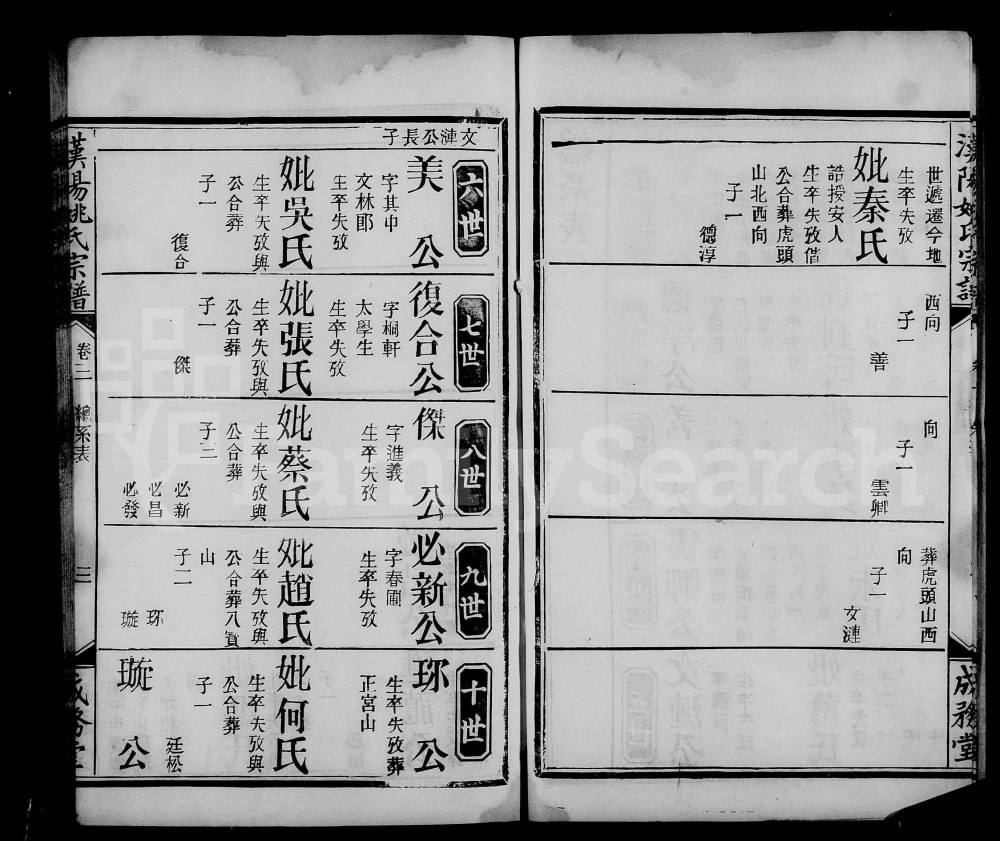 漢陽姚氏宗譜
成務堂
世遞遷今地
生卒失攷
妣秦氏
誥授安人
生卒失攷偕
公合葬虎頭
山北西向
子一
德淳
西向
子一
善
向
子一
雲卿
葬虎頭山西
向
子一
文漣
文漣公長子
六世
美公
字其中
文林郎
生卒失攷
妣吳氏
生卒失攷與
公合葬
子一
復合
七世
復合公
字桐軒
太學生
生卒失攷
妣張氏
生卒失攷與
公合葬
子一
傑
八世
傑公
字進義
生卒失攷
妣蔡氏
生卒失攷與
公合葬
子三
必新
必昌
必發
九世
必新公
字春圃
生卒失攷
妣趙氏
生卒失攷與
公合葬八寶
山
子二
珎
璇
十世
珎公
生卒失攷葬
正宮山
妣何氏
生卒失攷與
公合葬
子一
廷松
璇公
漢陽姚氏宗譜
卷二
總系表
三
成務堂
FamilySearch